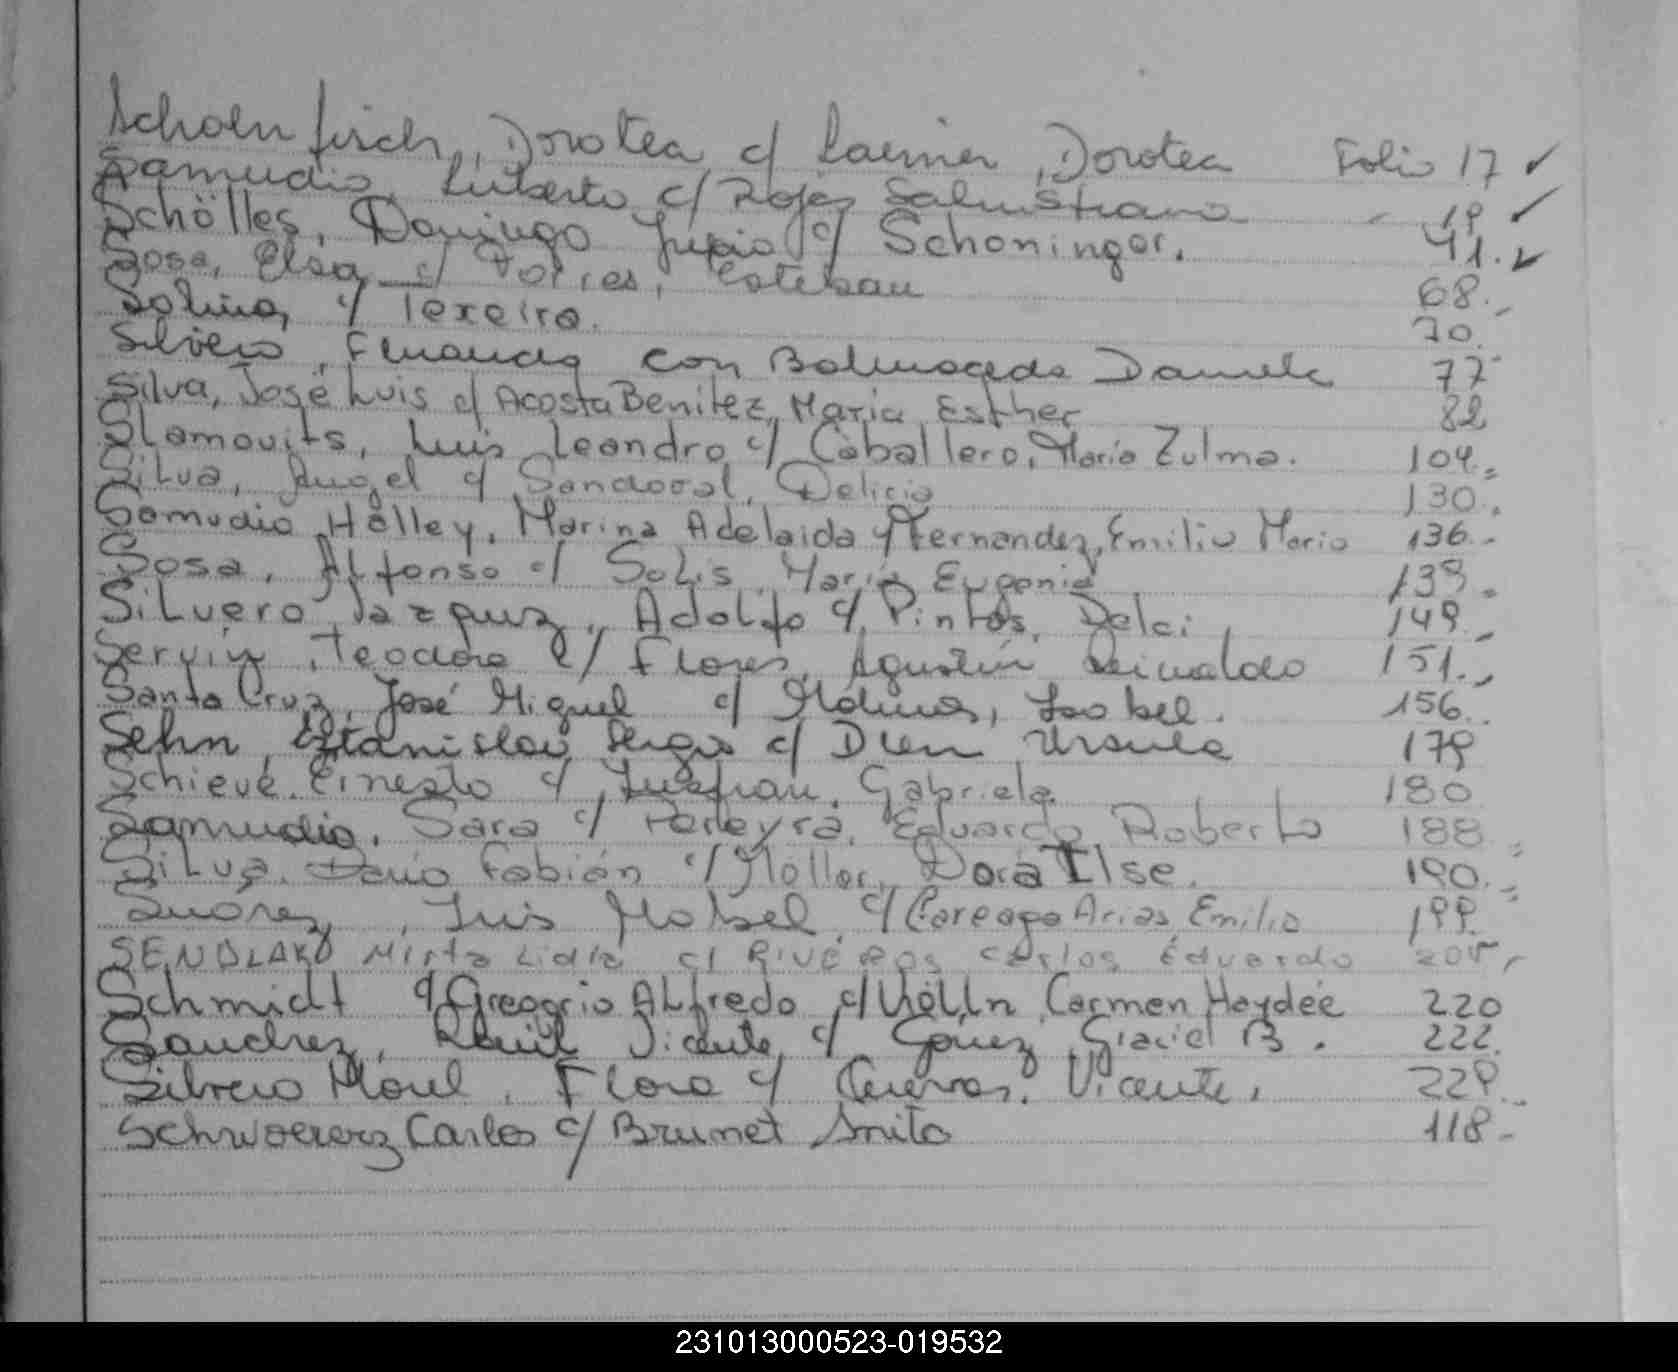 Schoenfisch, Dorotea c/ Laemer, Dorotea Folio 17 ✓
Samudio, Liberto c/ Rojas Salustiano - 19 ✓
Schölles, Domingo c/ Schoninger. 41. ✓
Sosa, Elsa c/ Torres, Esteban 68.
Salina, c/ Texeira. 70.
Silvero, con Balmaceda Daniel 77
Silva, José Luis c/ Acosta Benitez, Maria Esther 82
Slamovits, Luis Leandro c/ Caballero, Maria Zulma. 104.
Silva, Angel c/ Sandoval, Delicia 130.
Samudio Hölley, Marina Adelaida c/ Fernandez, Emilio Mario 136.-
Sosa, Alfonso c/ Solis, Maria Eugenia 139.
Silvero Vazquez, Adolfo c/ Pintos, Delci, 149.
Servin, Teodora c/ Flores, Agustin Reinaldo 151.
Santa Cruz, José Miguel c/ Molinas, Isabel. 156.
Sehn, Estanislao Sergio c/ Drem Ursula 179
Schieve, Ernesto c/ Insfran, Gabriela 180
Samudio, Sara c/ Pereyra, Eduardo Roberto 188
Silva, Dario Fabián c/ Möller, Dora Ilse. 190.
Suarez, Luis Mabel c/ Careaga Arias, Emilio 199.
SENDLAKO Mirta Lidia c/ Riveros Carlos Eduardo 205,
Schmidt c/ Gregorio Alfredo c/ Kölln, Carmen Haydée 220
Sanchez, Raúl Vicente c/ Gomez Graciel B. 222.
Silvero Morel, Flora c/ Cuevas, Vicente. 229.
Schwoererz Carlos c/ Brunet Anita 118-
231013000523-019532